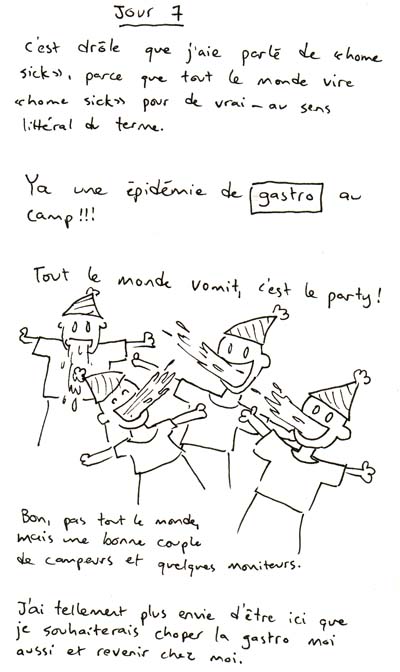 Jour 7
c'est drôle que j'aie parlé de «home
sick», parce que tout le monde vire
«home sick» pour de vrai – au sens
littéral du terme.
Ya une épidémie de gastro au
camp!!!
Tout le monde vomit, c'est le party!
Bon, pas tout le monde,
mais une bonne couple
de campeurs et quelques moniteurs.
J'ai tellement plus envie d'être ici que
je souhaiterais choper la gastro moi
aussi et revenir chez moi.